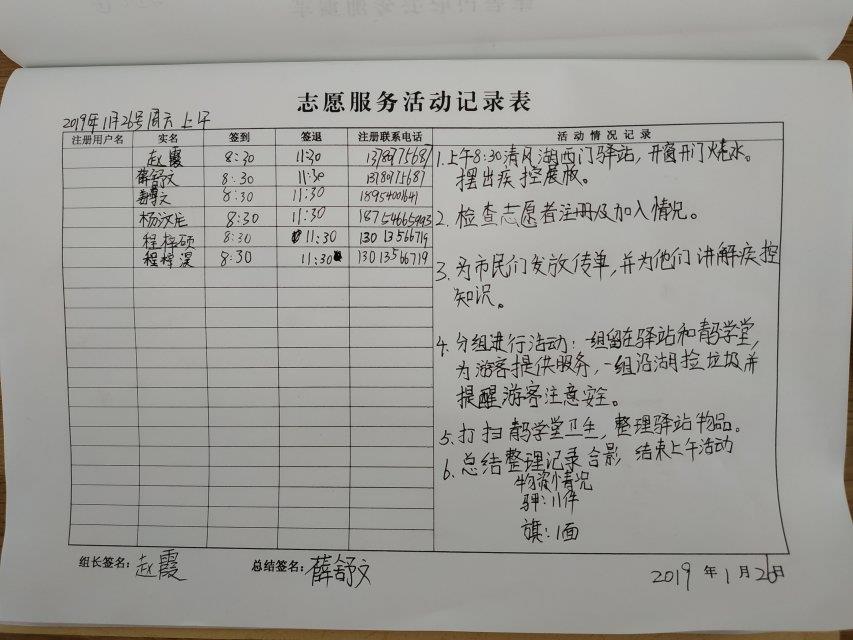 志愿服务活动记录表
2019年1月26号周六上午
注册用户名 实名 签到 签退 注册联系电话 活动情况记录
赵霞 8:30 11:30
薛舒文 8:30 11:30 1378975687
文 8:30 11:30 18954001641
杨汶 8:30 11:30 18754665993
程梓硕 8:30 11:30 13013566719
程梓淏 8:30 11:30 13013566719
1.上午8:30清风湖西门驿站,开窗开门烧水。
摆出疾控展板。
2.检查志愿者注册及加入情况。
3.为市民们发放传单,并为他们讲解疾控
知识。
4.分组进行活动:一组留在驿站和鹊学堂,
为游客提供服务,一组沿湖捡垃圾并
提醒游客注意安全。
5.打扫鹊学堂卫生,整理驿站物品。
6.总结整理记录合影 结束上午活动
物资情况
:11件
旗:1面
组长签名:赵霞 总结签名:薛舒文 2019年1月26日